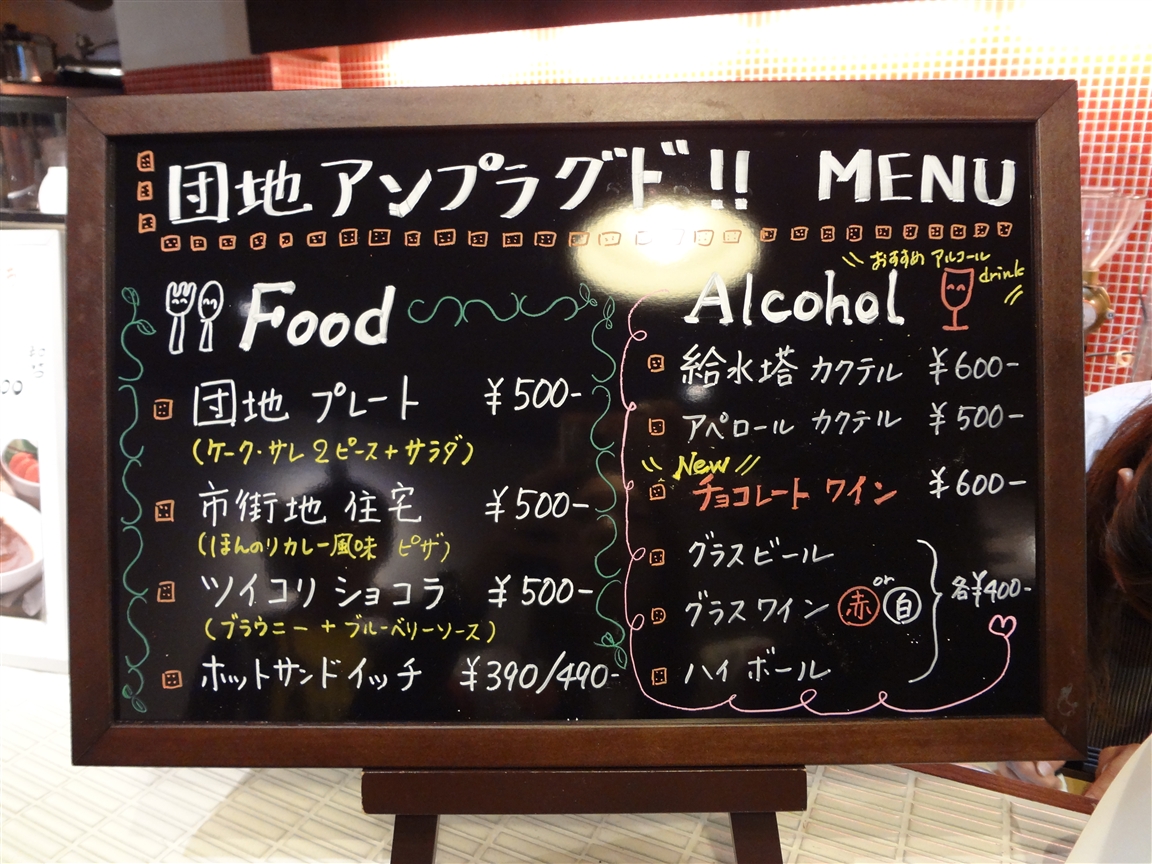 団地アンプラグド!! MENU
Food
団地 プレート ¥500-
(ケーク・サレ2ピース+サラダ)
市街地 住宅 ¥500-
(ほんのりカレー風味 ピザ)
ツイコリ ショコラ ¥500-
(ブラウニー+ブルーベリーソース)
ホットサンドイッチ ¥390/490-
おすすめ アルコール
drink
Alcohol
給水塔 カクテル ¥600-
アペロール カクテル ¥500-
New
チョコレート ワイン ¥600-
グラスビール
グラスワイン 赤 or 白
ハイボール
各¥400-